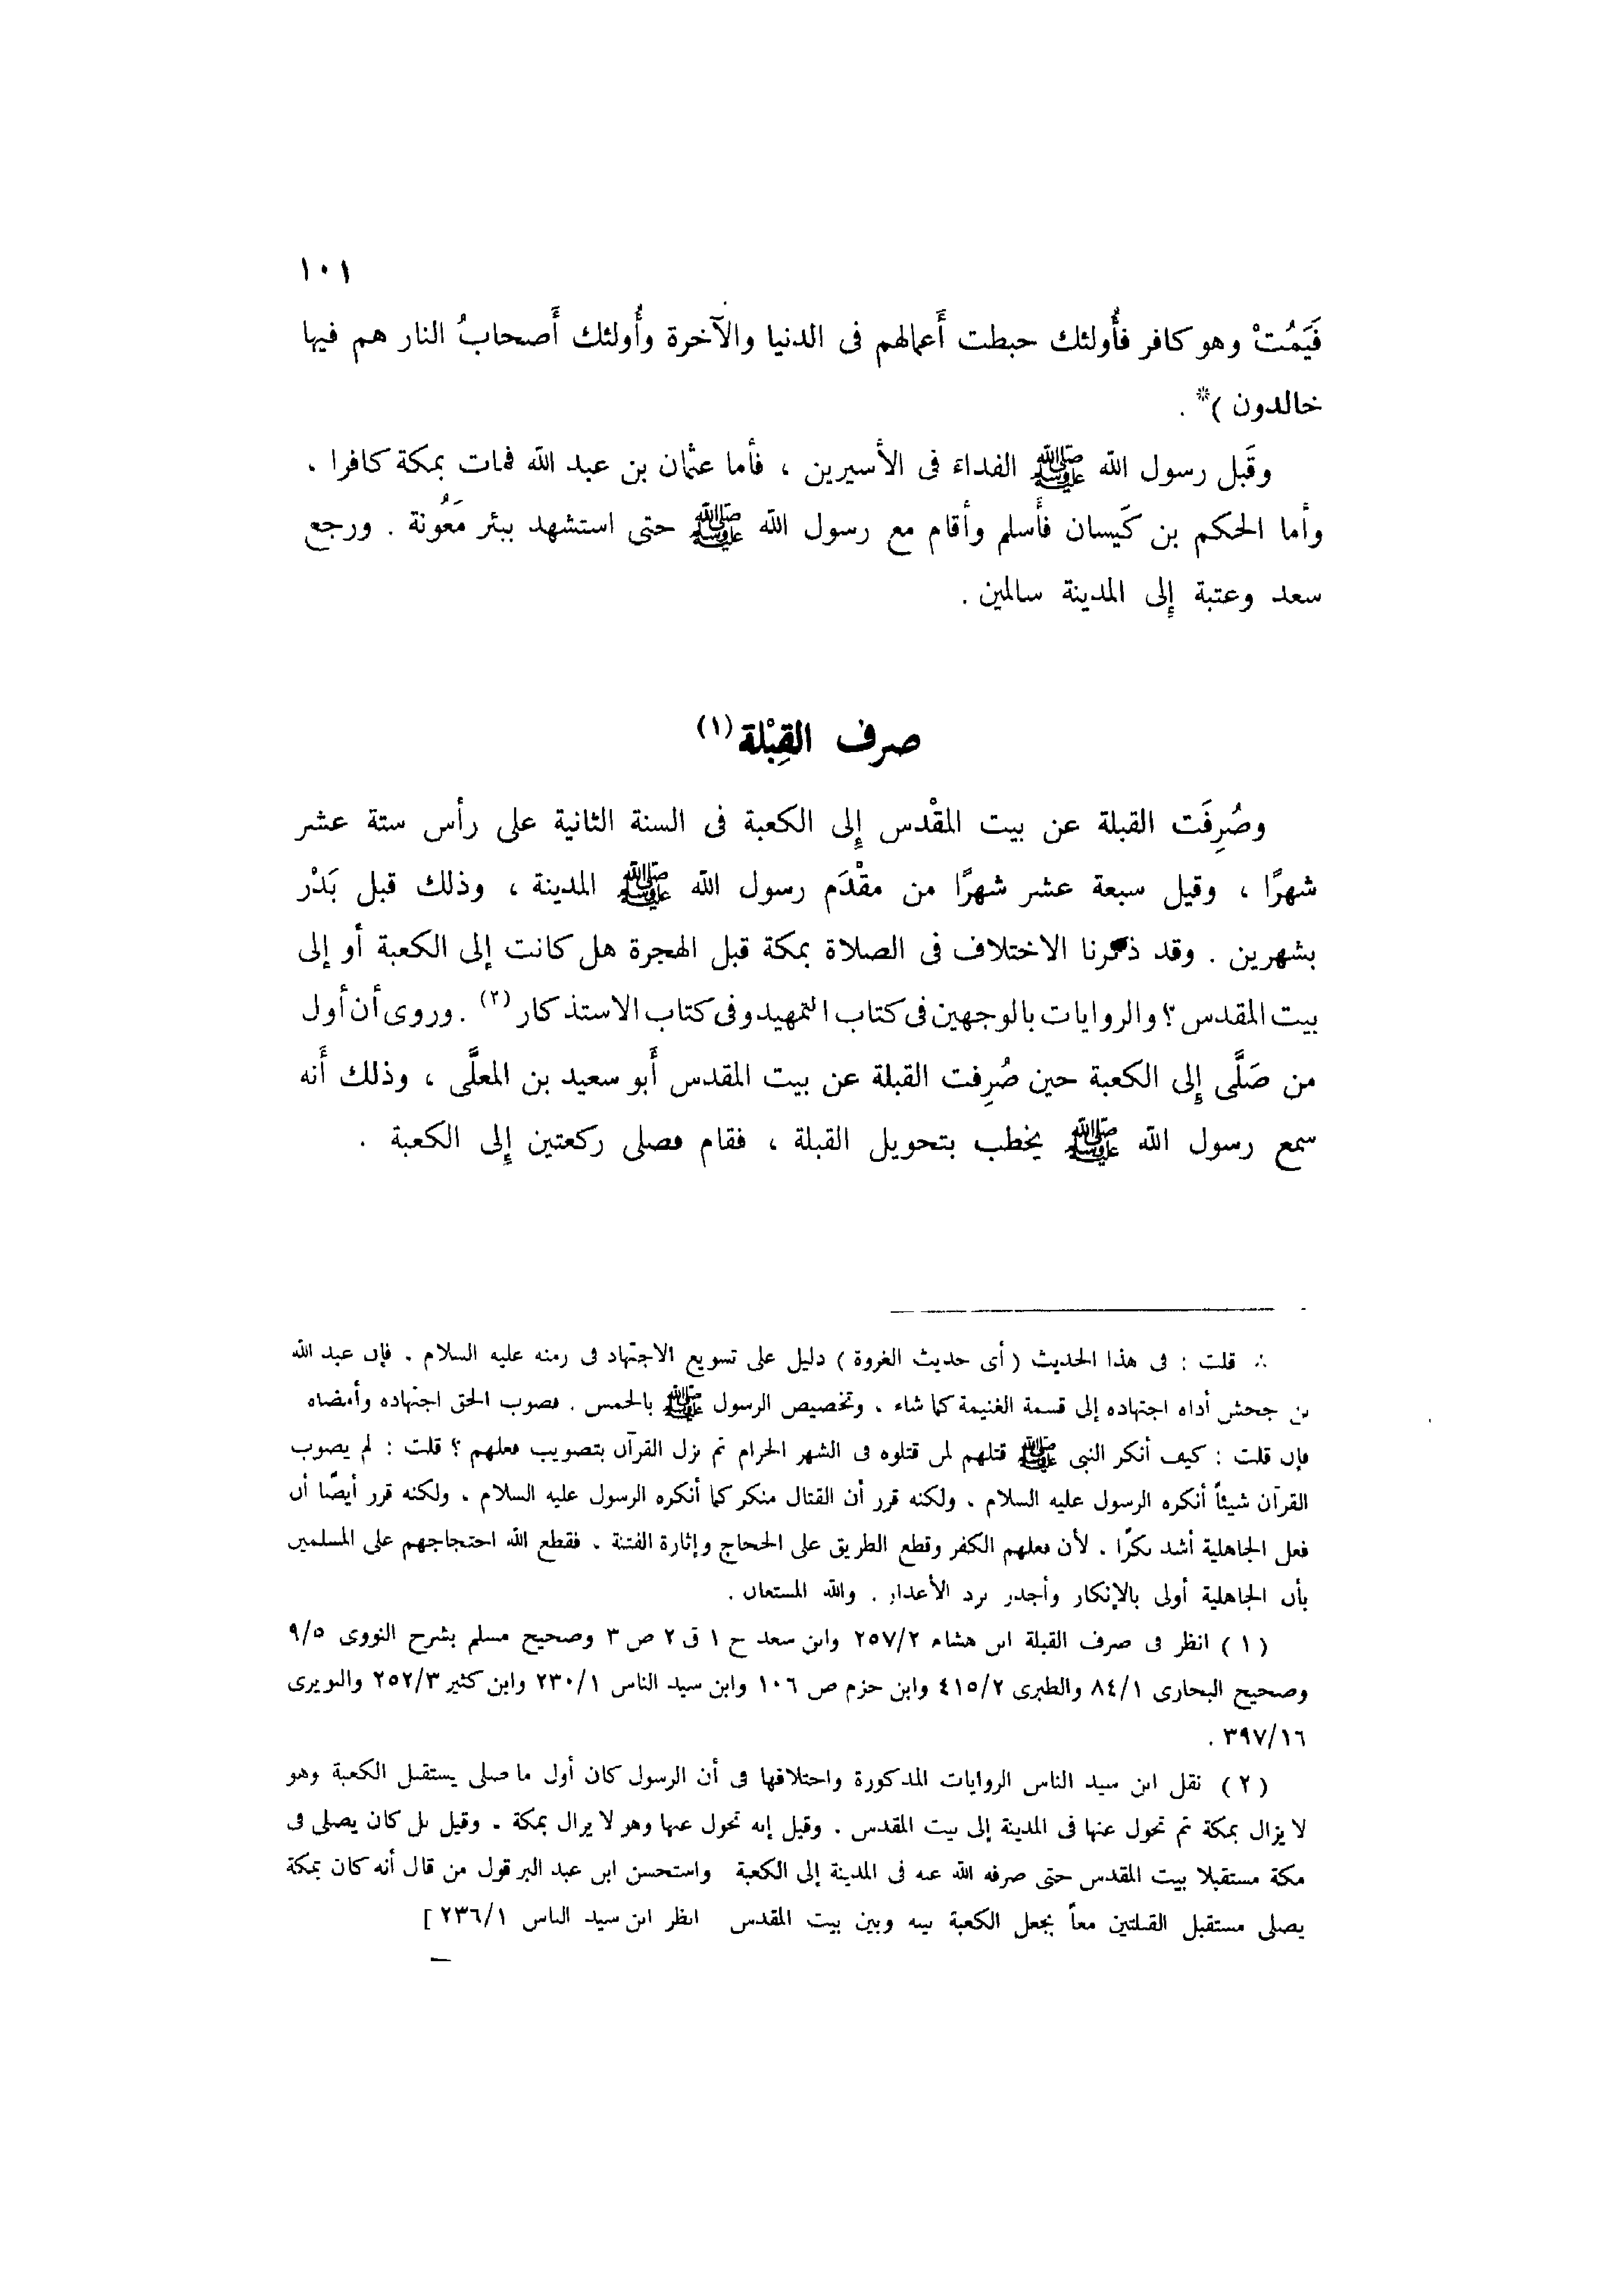 ١٠١
فَيَمُتْ وهو كافر فأُولئك حبطت أَعمالهم فى الدنيا والآخرة وأُولئك أَصحابُ النار هم فيها
خالدون )* .
وقَبل رسول الله ﷺ الفداءَ فى الأَسيرين ، فأَما عثمان بن عبد الله فمات بمكة كافرا .
وأَما الحكم بن كَيسان فأَسلم وأَقام مع رسول الله ﷺ حتى استشهد ببئر مَعُونة . ورجع
سعد وعتبة إلى المدينة سالمين .
صرف القِبْلة (١)
وصُرِفَت القبلة عن بيت المقْدس إلى الكعبة فى السنة الثانية على رأس ستة عشر
شهرًا ، وقيل سبعة عشر شهرًا من مقْدَم رسول الله ﷺ المدينة ، وذلك قبل بَدْر
بشهرين . وقد ذكرنا الاختلاف فى الصلاة بمكة قبل الهجرة هل كانت إلى الكعبة أو إلى
بيت المقدس ؟ والروايات بالوجهين فى كتاب التمهيد وفى كتاب الاستذكار (٢) . وروى أن أول
من صَلَّى إلى الكعبة حين صُرِفت القبلة عن بيت المقدس أَبو سعيد بن المعلَّى ، وذلك أَنه
سمع رسول الله ﷺ يخطب بتحويل القبلة ، فقام فصلى ركعتين إلى الكعبة .
∴ قلت : فى هذا الحديث ( أى حديث الغزوة ) دليل على تسويع الاجتهاد فى زمنه عليه السلام . فإن عبد الله
بن جحش أداه اجتهاده إلى قسمة الغنيمة كما شاء ، وتخصيص الرسول ﷺ بالخمس . فصوب الحق اجتهاده وأمضاه
فإن قلت : كيف أنكر النبى ﷺ قتلهم لمن قتلوه فى الشهر الحرام ثم نزل القرآن بتصويب فعلهم ؟ قلت : لم يصوب
القرآن شيئاً أنكره الرسول عليه السلام ، ولكنه قرر أن القتال منكر كما أنكره الرسول عليه السلام ، ولكنه قرر أيضًا أن
فعل الجاهلية أشد نكرًا . لأن فعلهم الكفر وقطع الطريق على الحجاج وإثارة الفتنة . فقطع الله احتجاجهم على المسلمين
بأن الجاهلية أولى بالإنكار وأجدر برد الأعذار . والله المستعان .
( ١ ) انظر فى صرف القبلة ابن هشام ٢٥٧/٢ وابن سعد ج ١ ق ٢ ص ٣ وصحيح مسلم بشرح النووى ٩/٥
وصحيح البخارى ٨٤/١ والطبرى ٤١٥/٢ وابن حزم ص ١٠٦ وابن سيد الناس ٢٣٠/١ وابن كثير ٢٥٢/٣ والنويرى
٣٩٧/١٦ .
( ٢ ) نقل ابن سيد الناس الروايات المذكورة واختلافها فى أن الرسول كان أول ما صلى يستقبل الكعبة وهو
لا يزال بمكة ثم تحول عنها فى المدينة إلى بيت المقدس . وقيل إنه تحول عنها وهو لا يزال بمكة . وقيل بل كان يصلى فى
مكة مستقبلا بيت المقدس حتى صرفه الله عنه فى المدينة إلى الكعبة واستحسن ابن عبد البر قول من قال أنه كان بمكة
يصلى مستقبل القبلتين معاً بجعل الكعبة بينه وبين بيت المقدس انظر ابن سيد الناس ٢٣٦/١ ]